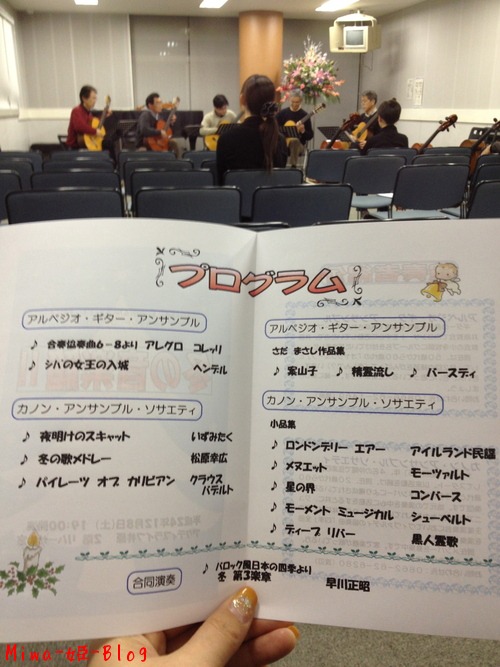 プログラム
アルペジオ・ギター・アンサンブル
♪ 合奏協奏曲6-8より アレグロ コレッリ
♪ シバの女王の入城 ヘンデル
カノン・アンサンブル・ソサエティ
♪ 夜明けのスキャット いずみたく
♪ 冬の歌メドレー 松原幸広
♪ パイレーツ オブ カリビアン クラウス
バデルト
アルペジオ・ギター・アンサンブル
さだ まさし作品集
♪ 案山子 ♪ 精霊流し ♪ バースディ
カノン・アンサンブル・ソサエティ
小品集
♪ ロンドンデリー エアー アイルランド民謡
♪ メヌエット モーツァルト
♪ 星の界 コンバース
♪ モーメント ミュージカル シューベルト
♪ ディープ リバー 黒人霊歌
合同演奏
♪ バロック風日本の四季より
冬 第3楽章 早川正昭
Miwa-姫-Blog